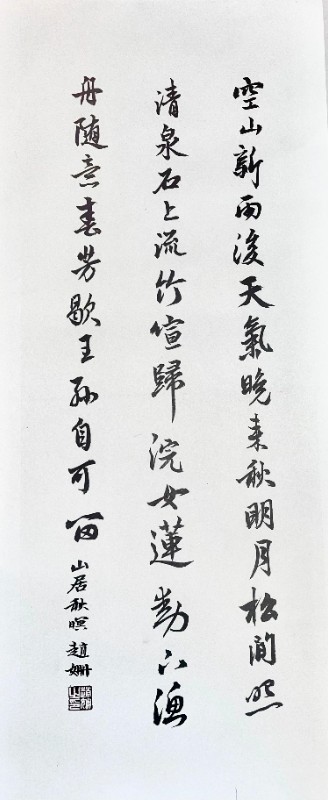 空山新雨後天氣晚来秋明月松間照
清泉石上流竹喧歸浣女蓮動下漁
舟随意春芳歇王孫自可留
山居秋暝趙姍